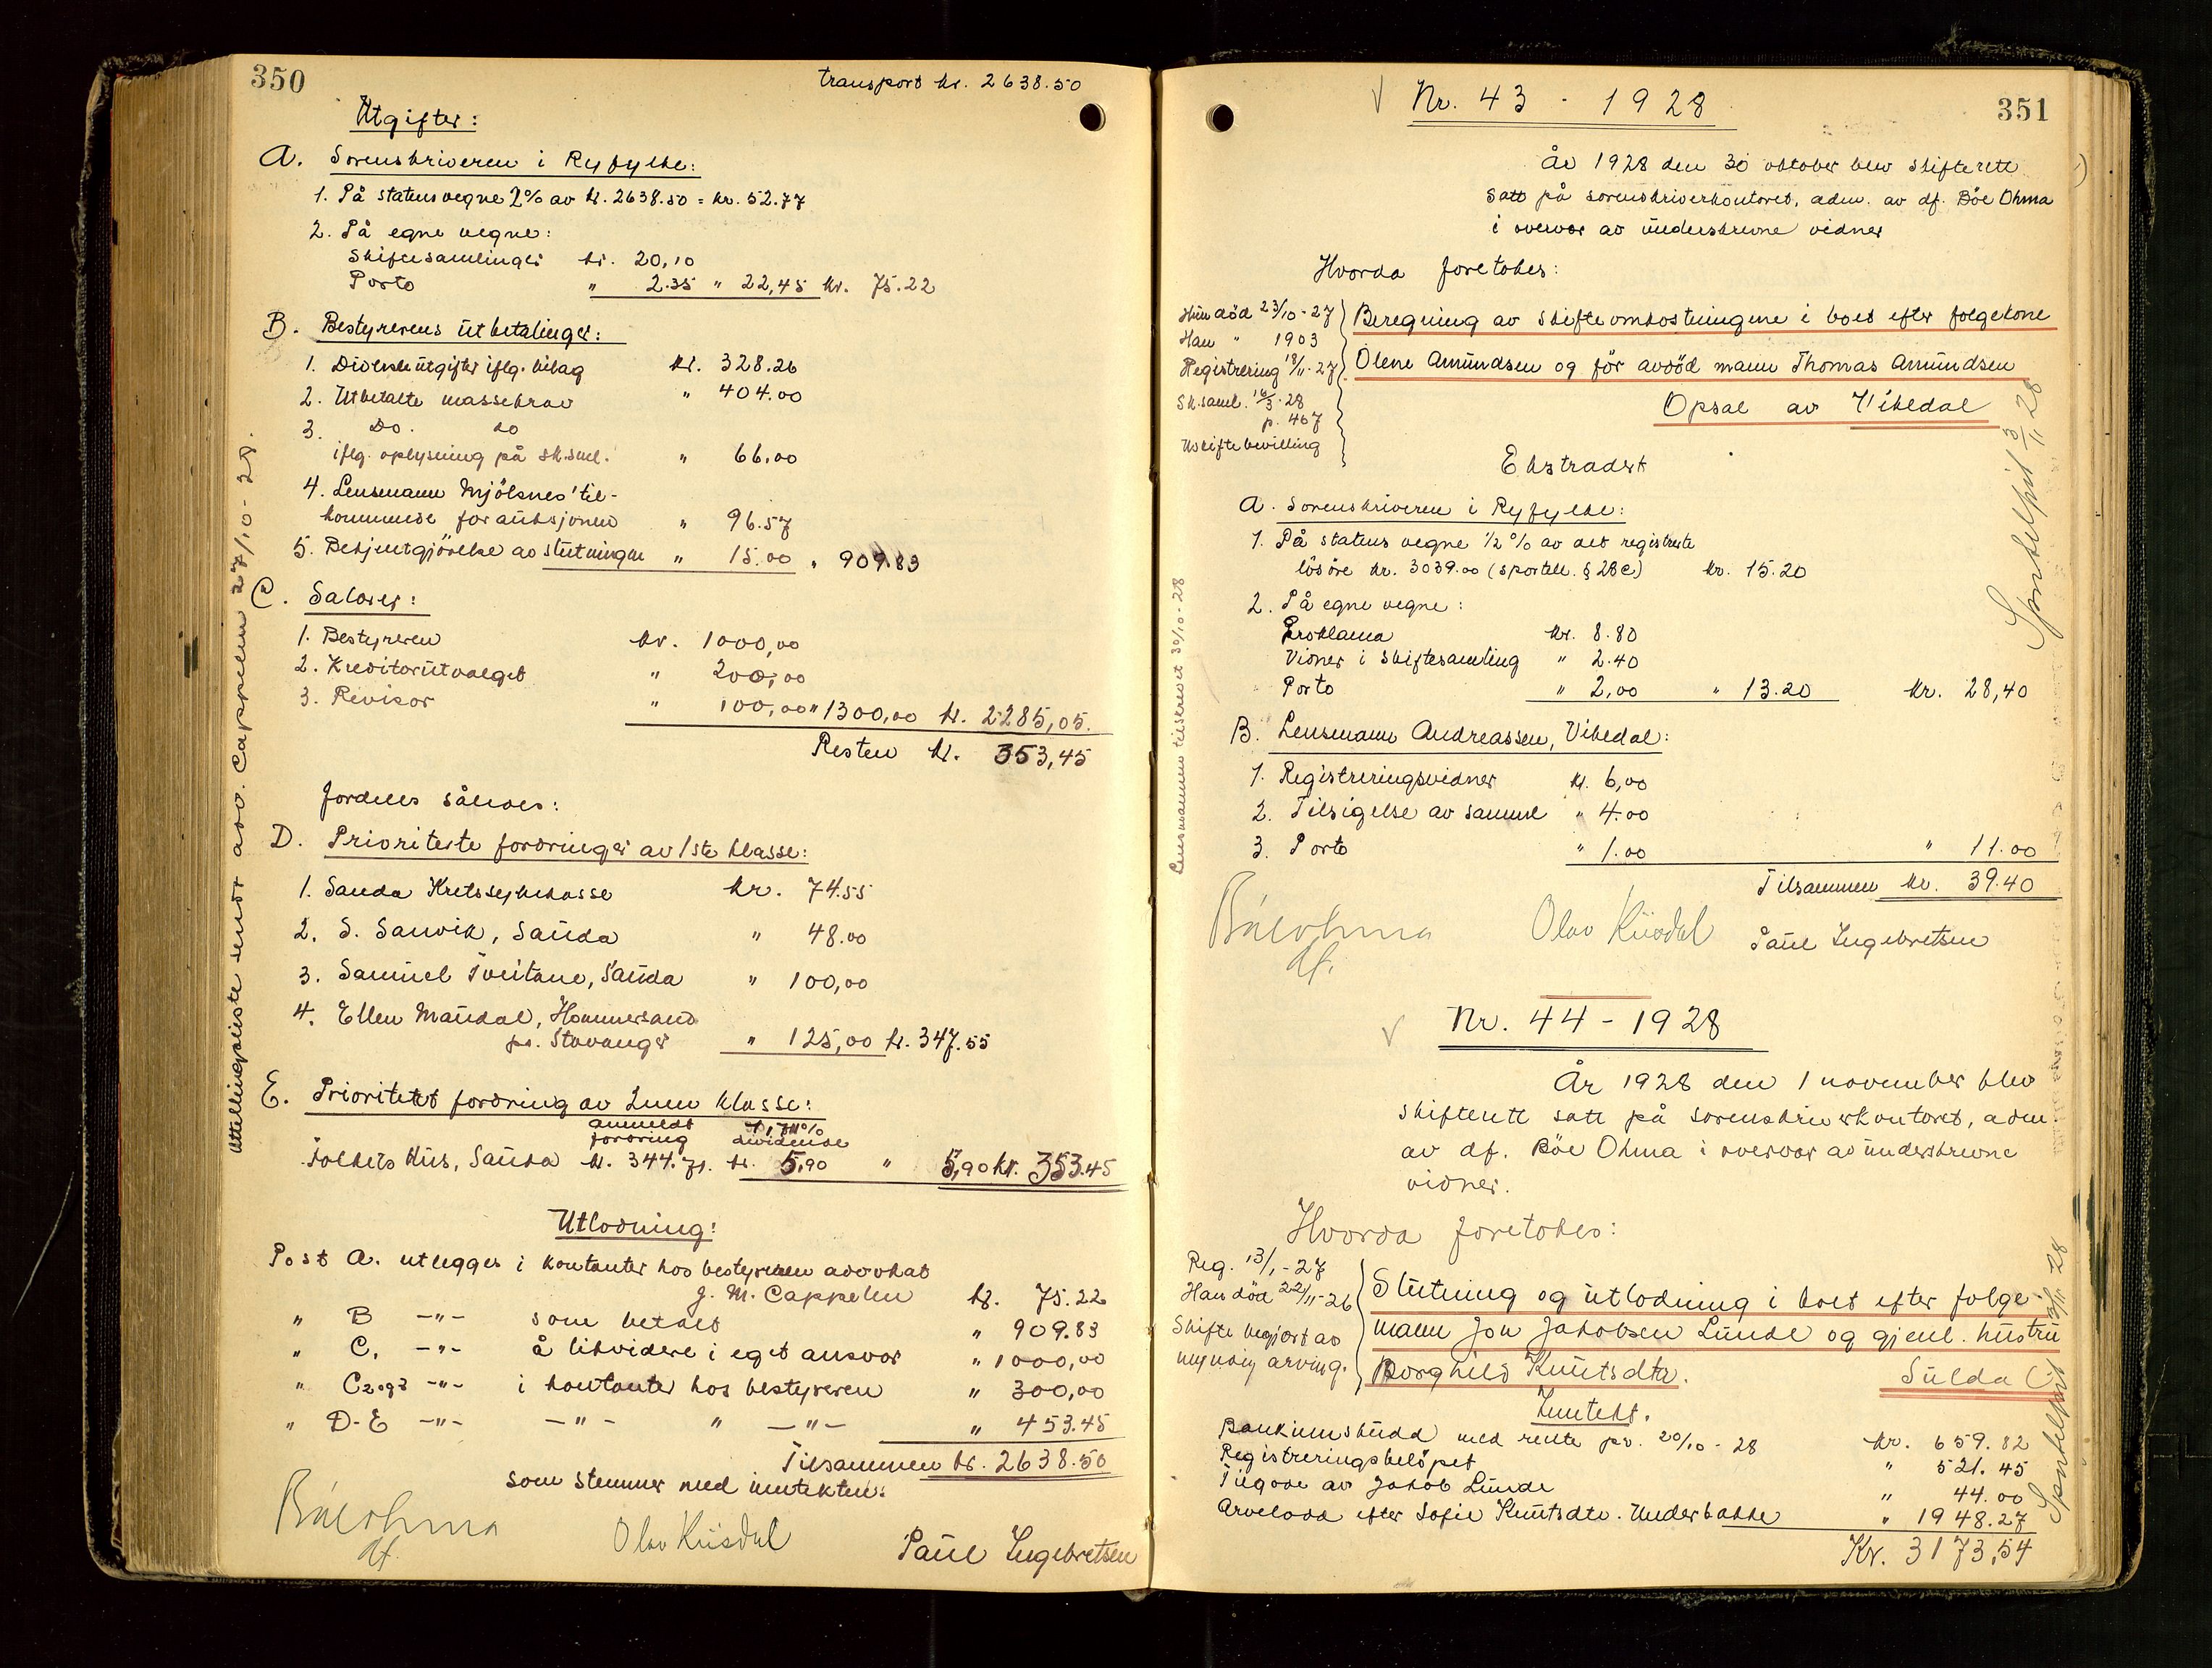 350
transport kr. 2638.50
Utgifter:
A. Sorenskriveren i Ryfylke:
1. På statens vegne 2% av kr. 2638.50 = kr. 52.77
2. På egne vegne:
Skiftesamlinger kr. 20,10
Porto " 2.35 " 22,45 kr. 75.22
B. Bestyrerens utbetalinger:
1. Diverse utgifter iflg. bilag kr. 328.26
2. Utbetalte massekrav " 404.00
3. Do. do
iflg. oplysning på sk.sml. " 66.00
4. Lensmann Mjölsnes' til-
kommende for auksjonen " 96.57
5. Bekjentgjörelse av slutningen " 15.00 " 909.83
C. Salarer:
1. Bestyreren kr. 1000,00
2. Kreditorutvalget " 200,00
3. Revisor " 100,00 " 1300,00 kr. 2285,05.
Resten kr. 353,45
fordeles således:
D. Prioriterte fordringer av 1ste klasse:
1. Sauda Kretssykekasse kr. 74.55
2. S. Sanvik, Sauda " 48.00
3. Samuel Tveitane, Sauda " 100,00
4. Ellen Mandal, Hommersand
pr. Stavanger " 125,00 kr. 347.55
E. Prioritert fordring av 2nen klasse:
anmeldt 1,711%
fordring dividende
Folkets Hus, Sauda kr. 344.71. kr. 5,90 " 5,90 kr. 353.45
Utlodning:
Post A. utlegges i kontanter hos bestyreren advokat
J. M. Cappelen kr. 75.22
" B -"- som betalt " 909.83
" C, -"- å likvidere i eget ansvar " 1000,00
" C2 og 3 -"- i kontanter hos bestyreren " 300,00
" D-E -"- -"- " -"- " 453.45
Tilsammen kr. 2638.50
som stemmer med inntekten:
Böe Ohma
df.
Olav Küsdal
Paul Ingebretsen
Utstillingsliste sendt adv. Cappelen 27/10-28.
351
Nr. 43 - 1928
År 1928 den 30 oktober blev skifterett
satt på sorenskriverkontoret, adm. av df. Böe Ohma
i overvær av underskrevne vidner
Hvorda foretokes:
Hun död 23/10-27
Han " 1903
Registrering 18/11-27
Sk.saml. 16/3-28
p. 467
Uskiftebevilling
Beregning av skifteomkostningene i boet efter folgekone
Olene Amundsen og för avdöd mann Thomas Amundsen
Opsal av Vikedal
Sportelfrit 3/11 28
Ekstradert
A. Sorenskriveren i Ryfylke:
1. På statens vegne 1/2 % av det registrerte
lösöre kr. 3039.00 (sportell. § 28c) kr. 15.20
2. På egne vegne:
Proklama kr. 8.80
Vidner i skiftesamling " 2.40
Porto " 2,00 " 13.20 kr. 28,40
B. Lensmann Andreassen, Vikedal:
1. Registreringsvidner kr. 6,00
2. Tilsigelse av samme " 4.00
3. Porto " 1.00 " 11.00
Tilsammen kr. 39.40
Lensmannen tilskrevet 30/10-28
Böe Ohma
df.
Olav Küsdal
Paul Ingebretsen
Nr. 44 - 1928
År 1928 den 1 november blev
skifterett satt på sorenskriverkontoret, adm.
av df. Böe Ohma i overvær av underskrevne
vidner.
Hvorda foretokes:
Reg. 13/1-27
Han död 22/11-26
Skifte begjært av
myndig arving.
Slutning og utlodning i boet efter folge
mann Jon Jakobsen Lunde og gjenl. hustru
Borghild Knutsdtr. Sulda
Inntekt.
Bankinnskudd med rente pr. 20/10-28 kr. 659.82
Registreringsbelöpet " 521.45
Tilgode av Jakob Lunde " 44.00
Arvelodd efter Sofie Knutsdtr. Underbakke " 1948.27
Kr. 3173,54